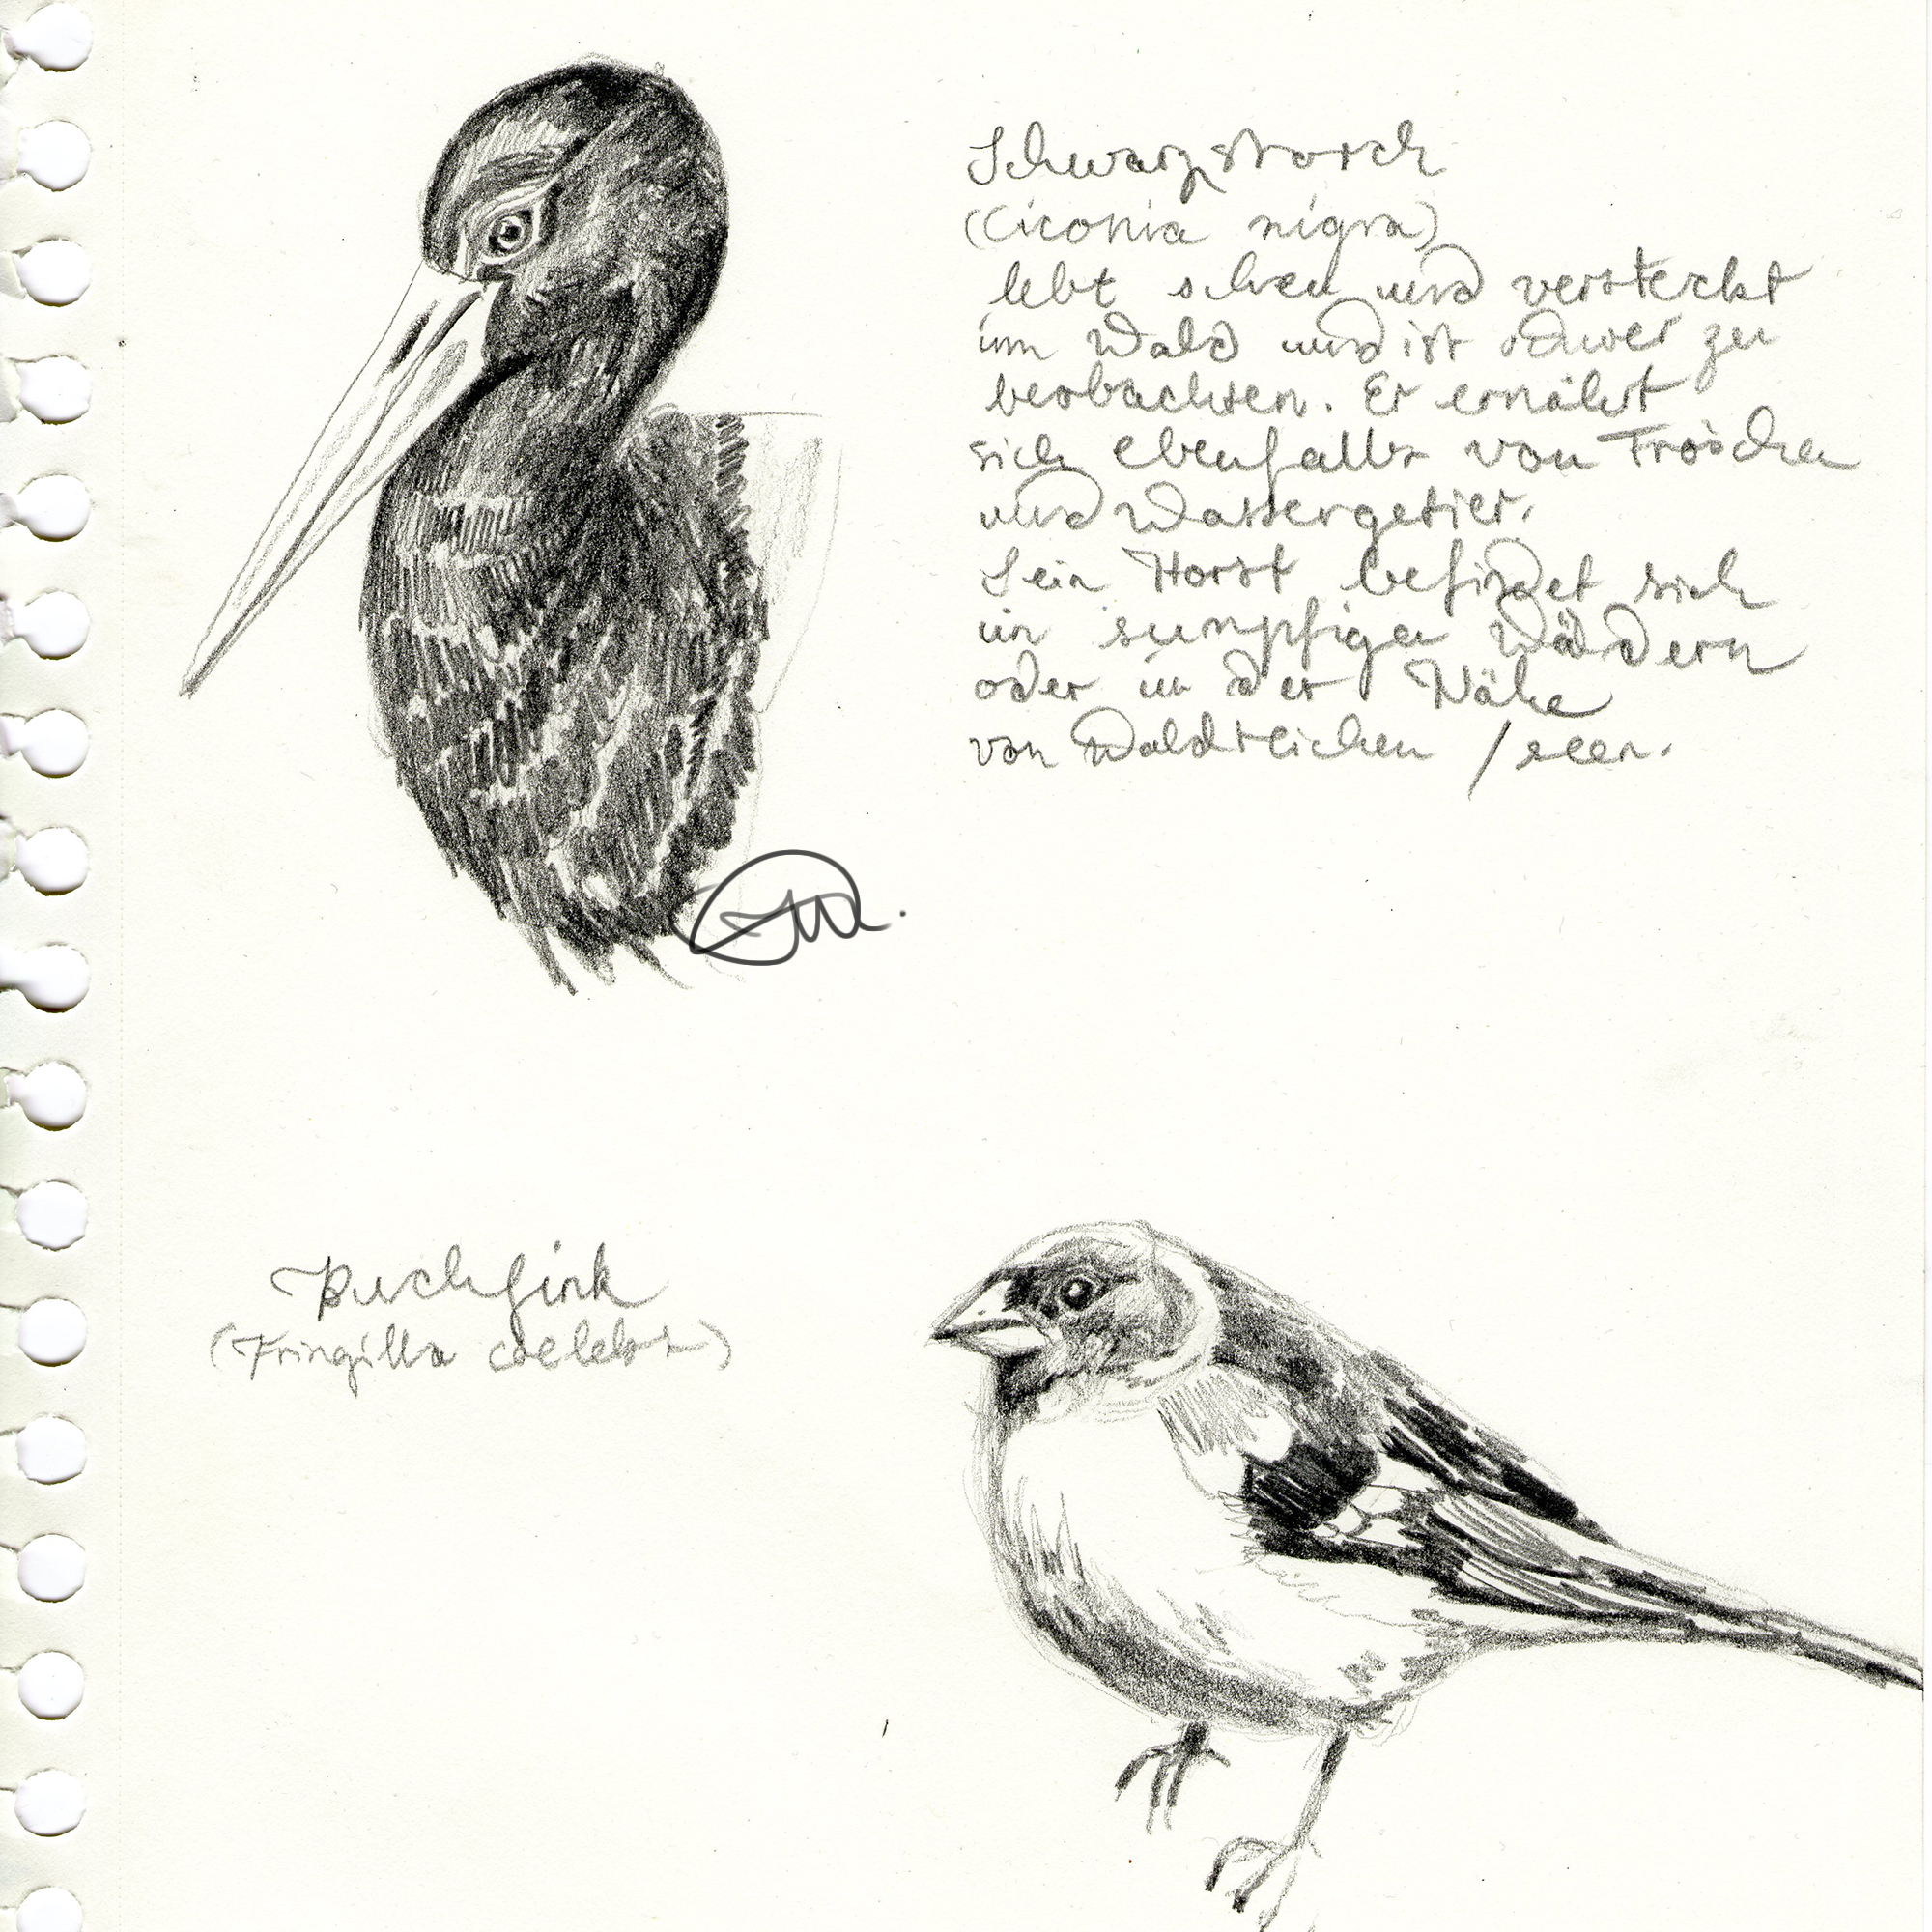 Schwarzstorch
(Ciconia nigra)
lebt scheu und versteckt
im Wald und ist schwer zu
beobachten. Er ernährt
sich ebenfalls von Fröschen
und Wassergetier.
Sein Horst befindet sich
in sumpfigen Wäldern
oder in der Nähe
von Waldteichen /seen.
Buchfink
(Fringilla coelebs)